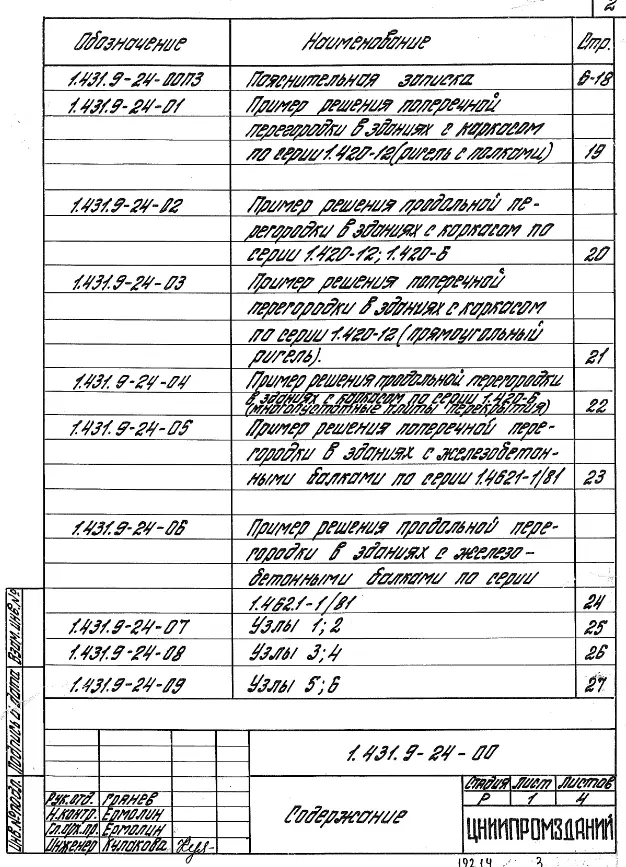 2
Обозначение Наименование Стр.
1.431.9-24-00ПЗ Пояснительная записка 6-18
1.431.9-24-01 Пример решения поперечной
перегородки в зданиях с каркасом
по серии 1.420-12 (ригель с полками) 19
1.431.9-24-02 Пример решения продольной пе-
регородки в зданиях с каркасом по
серии 1.420-12; 1.420-6 20
1.431.9-24-03 Пример решения поперечной
перегородки в зданиях с каркасом
по серии 1.420-12 (прямоугольный
ригель). 21
1.431.9-24-04 Пример решения продольной перегородки
в зданиях с каркасом по серии 1.420-6
(многопустотные плиты перекрытия) 22
1.431.9-24-05 Пример решения поперечной пере-
городки в зданиях с железобетон-
ными балками по серии 1.4621-1/81 23
1.431.9-24-06 Пример решения продольной пере-
городки в зданиях с железо-
бетонными балками по серии
1.462.1-1/81 24
1.431.9-24-07 Узлы 1; 2 25
1.431.9-24-08 Узлы 3; 4 26
1.431.9-24-09 Узлы 5; 6 27
Взам.инв.№
Подпись и дата
Инв.№подл.
1.431.9-24-00
Рук.отд. Гранев
Н.контр. Ермолин
Гл.арх.пр. Ермолин
Инженер Кулакова
Содержание
Стадия Лист Листов
Р 1 4
ЦНИИПРОМЗДАНИЙ
19214 3